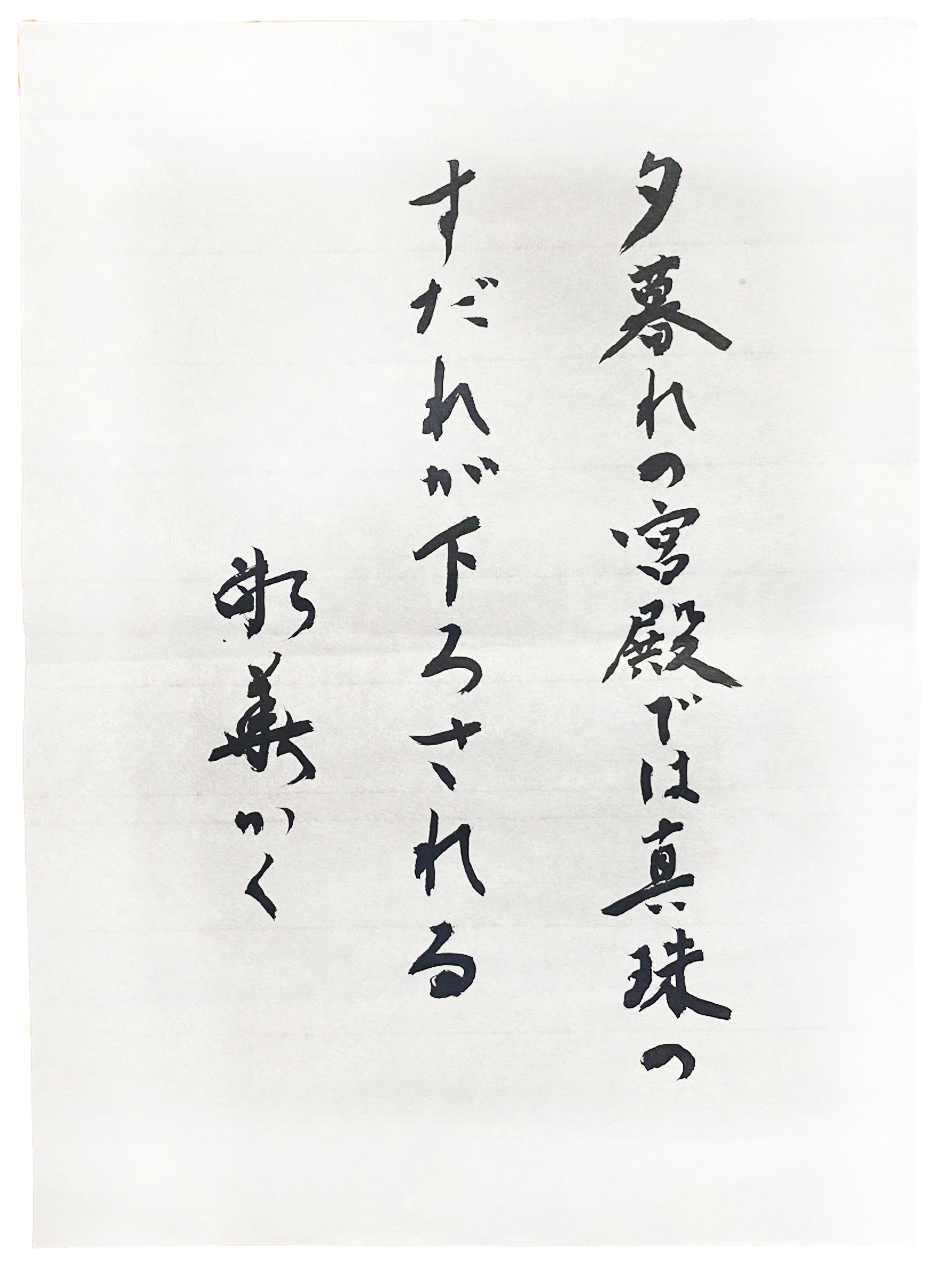 夕暮れの宮殿では真珠の
すだれが下ろされる
華かく